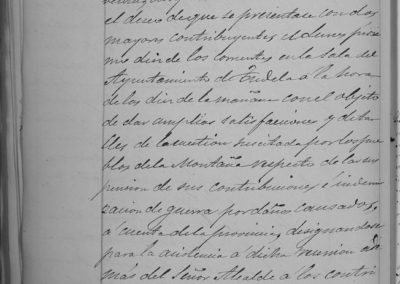 el deseo de que se presentase con dos
mayores contribuyentes el lunes próxi
mo diez de los corrientes en la sala del
Ayuntamiento de Tudela a la hora
de las diez de la mañana con el objeto
de dar amplias satisfacciones y deta
lles de la cuestion suscitada por los pue
blos de la Montaña respecto de la sus
pension de sus contribuciones é indemni
zacion de guerra por daños causados,
á cuenta de la provincia, designandose
para la asistencia á dicha reunion ade
mas del Señor Alcalde a los contri